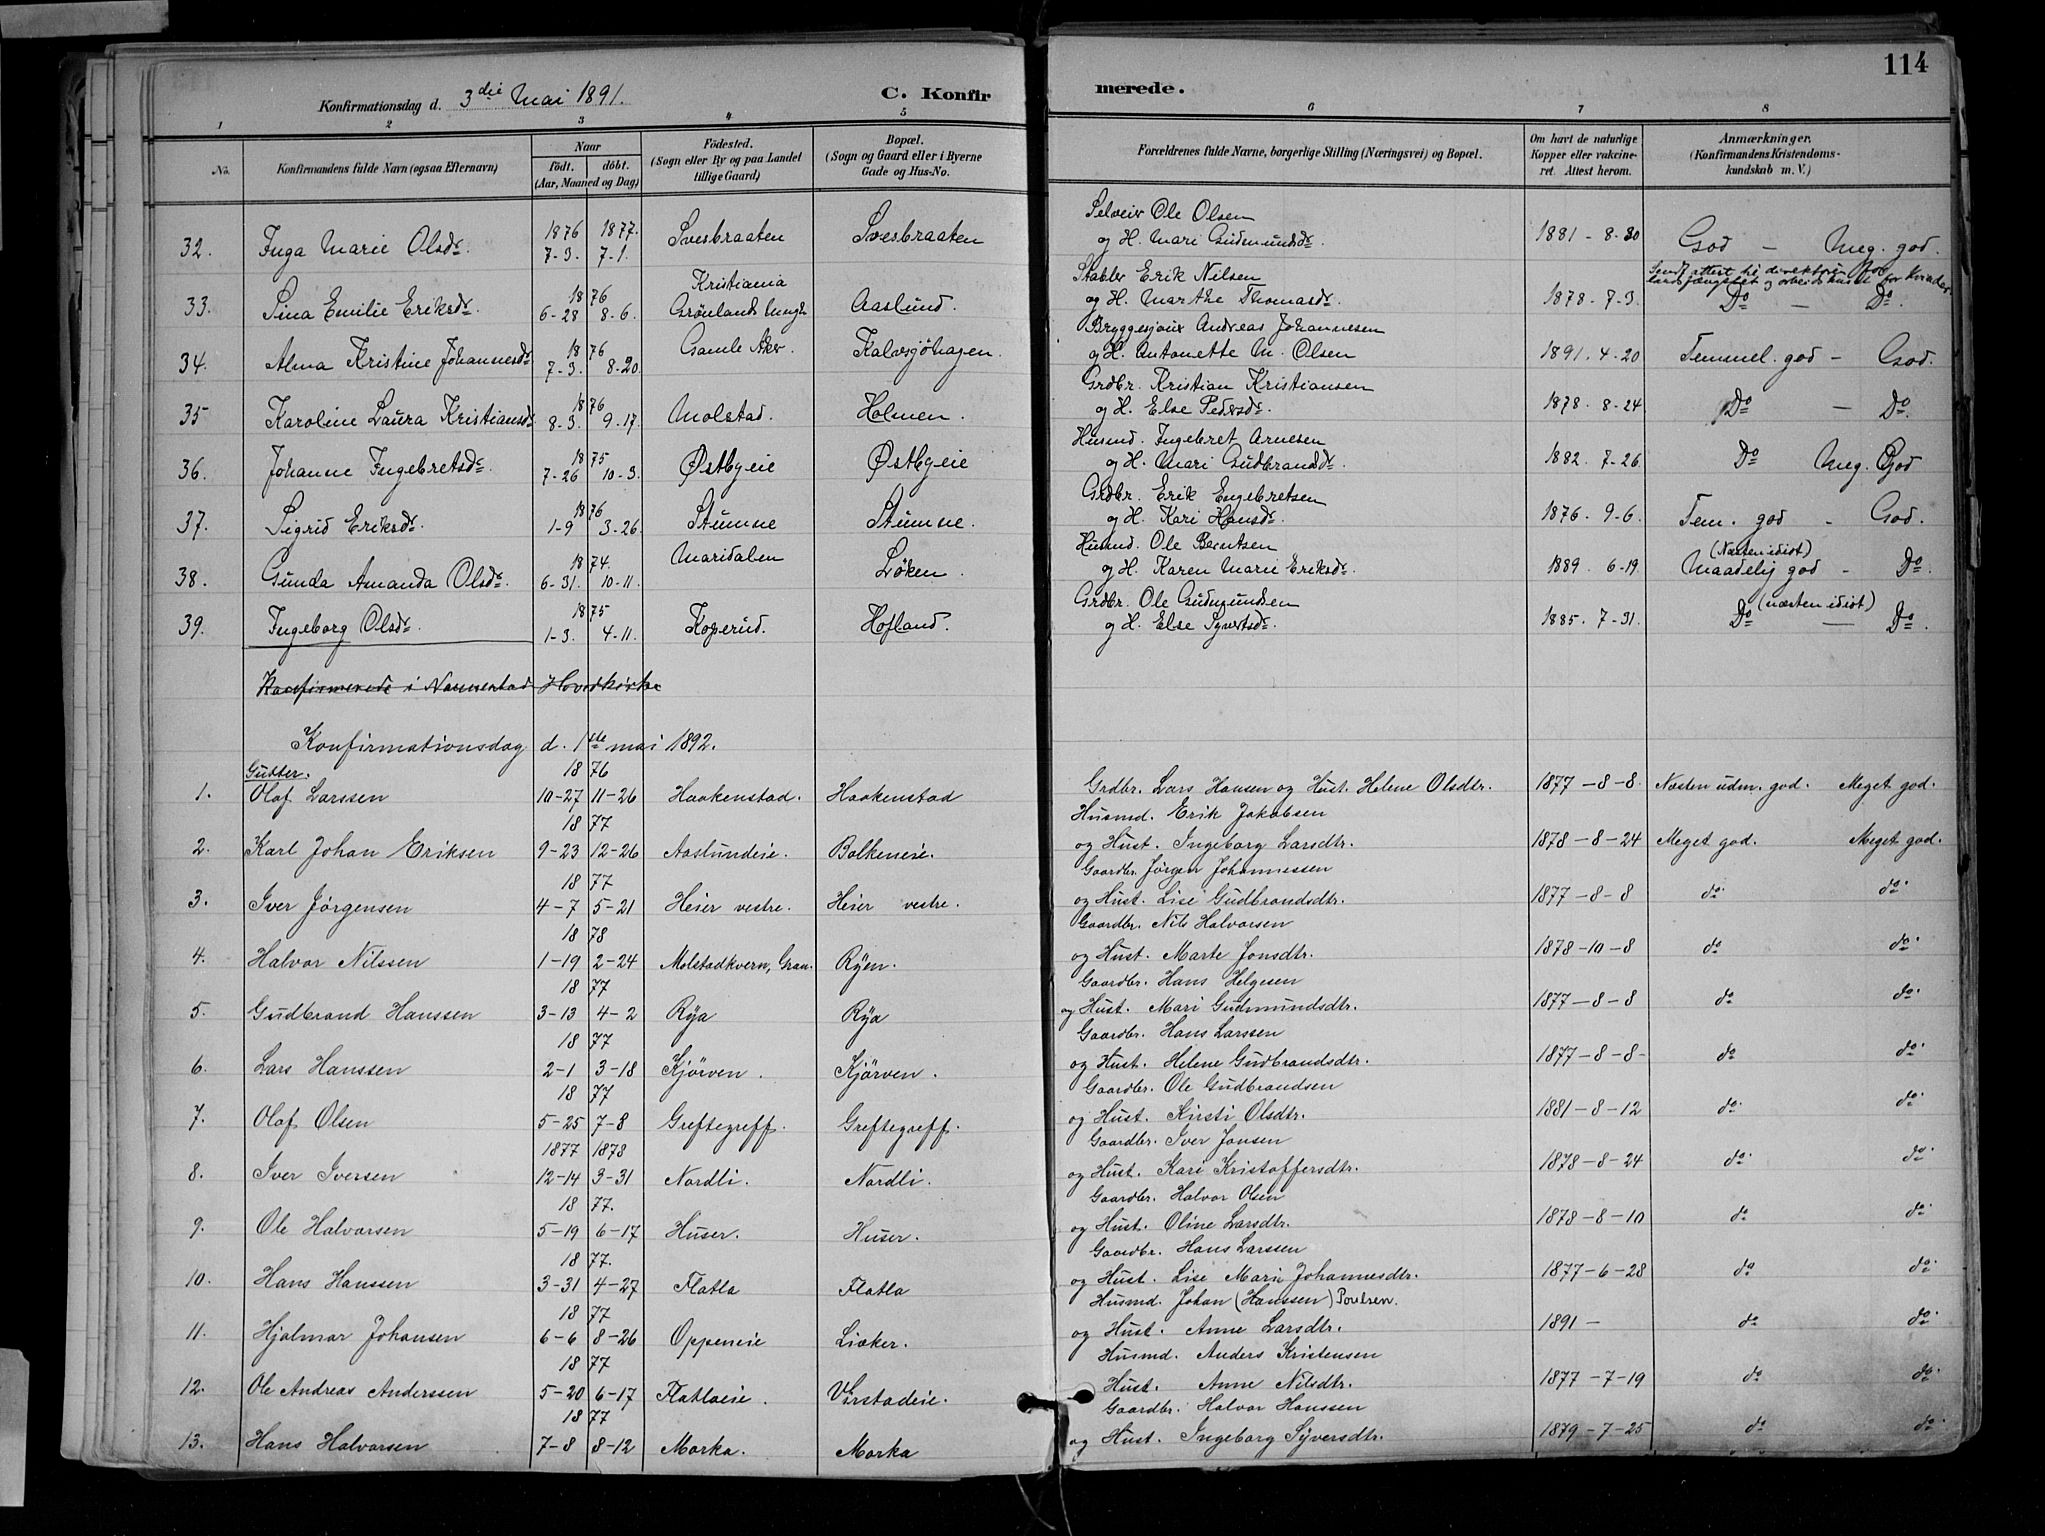 114
Konfirmationsdag d. 3die Mai 1891. C. Konfirmerede.
1 2 3 4 5 6 7 8
No. Konfirmandens fulde Navn (ogsaa Efternavn) Naar født. døbt. (Aar, Maaned og Dag) Fødested. (Sogn eller By og paa Landet tillige Gaard) Bopæl. (Sogn og Gaard eller i Byerne Gade og Hus-No. Forældrenes fulde Navne, borgerlige Stilling (Næringsvei) og Bopæl. Om havt de naturlige Kopper eller vakcineret. Attest herom. Anmærkninger. (Konfirmandens Kristendomskundskab m. V.)
Selveier Ole Olsen
32. Inga Marie Olsdr. 1876 7-3. 1877. 7-1. Svesbraaten Svesbraaten og H. Mari Gudmundsdr. 1881-8-30 God - Meg. god.
Kristiania Stabler Erik Nilsen Sendt attest til direktøren for landsfængslet og arbeidshuset for kvinder
33. Sina Emilie Eriksdr. 1876 6-28 8-6. Grønlands Mngh Aaslund. og H. Marthe Thomasdr. 1878-7-3. Do - Do.
Bryggesjauer Andreas Johannesen
34. Alma Kristine Johannesdr. 1876 7-3. 8-20. Gamle Aker. Kalvsjöhagen. og H. Antonette M. Olsen 1891. 4-20 Temmel. god - God.
Grdbr. Kristian Kristiansen
35 Karoline Laura Kristiansdr. 1876 8-3. 9-17. Molstad. Holmen. og H. Else Pedersdr. 1878. 8-24 Do - Do.
Husmd. Ingebret Arnesen
36. Johanne Ingebretsdr. 1875 7-26 10-3. Østbyeie Østbyeie og H. Mari Gudbrandsdr. 1882. 7-26. Do Meg. God
Grdbr. Erik Engebretsen
37. Sigrid Eriksdr. 1876 1-9 3-26. Stumne Stumne. og H. Kari Hansdr. 1876. 9-6. Tem. god - God.
Husmd. Ole Berntsen (Næsten idiot)
38. Gunda Amanda Olsdr. 1874. 6-31. 10-11. Maridalen Løken. og H. Karen Marie Eriksdr. 1889. 6-19 Maadelig god - Do.
Grdbr. Ole Gudmundsen (næsten idiot)
39. Ingeborg Olsdr. 1875 1-3. 4-11. Koperud. Hofland. og H. Else Syvertsdr. 1885. 7-31. Do - Do.
Konfirmerede i Nannestad Hovedkirke
Konfirmationsdag d. 1ste mai 1892.
Gutter.
1. Olaf Larssen 1876 10-27 11-26 Haakenstad. Haakenstad Grdbr. Lars Hansen og Hust. Helene Olsdtr. 1877-8-8. Næsten udm. god. Meget god.
Husmd. Erik Jakobsen
2. Karl Johan Eriksen 1877 9-23 12-26 Aaslundeie. Balkeneie. og Hust. Ingeborg Larsdtr. 1878-8-24 Meget god. Meget god.
Gaardbr. Jørgen Johannessen
3. Iver Jørgensen 1877 4-7 5-21 Heier vestre. Heier vestre. og Hust. Lise Gudbrandsdtr. 1877-8-8 do. do.
Gaardbr. Nils Halvorsen
4. Halvor Nilssen 1878 1-19 2-24 Molstadkvern, Gran. Ryen. og Hust. Marte Jonsdtr. 1878-10-8 do do.
Gaardbr. Hans Helgesen
5. Gudbrand Hanssen 1877 3-13 4-2 Rya Rya og Hust. Mari Gudmundsdtr. 1877-8-8 do. do.
Gaardbr. Hans Larssen
6. Lars Hanssen 1877 2-1 3-18 Kjörven. Kjörven. og Hust. Helene Gudbrandsdtr. 1877-8-8- do do.
Gaardbr. Ole Gudbrandsen
7. Olaf Olsen 1877 5-25 7-8 Greftegreff. Greftegreff. og Hust. Kirsti Olsdtr. 1881-8-12 do. do.
Gaardbr. Iver Jonsen
8. Iver Iversen 1877 12-14 1878 3-31 Nordli. Nordli. og Hust. Kari Kristoffersdtr. 1878-8-24 do. do.
Gaardbr. Halvor Olsen
9. Ole Halvorsen 1877. 5-19 6-17 Huser. Huser. og Hust. Oline Larsdtr. 1878-8-10 do do.
Gaardbr. Hans Larssen
10. Hans Hanssen 1877. 3-31 4-27 Flatla Flatla og Hust. Lise Marie Johannesdtr. 1877-6-28 do do.
Husmd. Johan (Hanssen) Poulsen.
11. Hjalmar Johansen 1877 6-6 8-26 Oppeneie Liaker. og Hust. Anne Larsdtr. 1891- do do.
Husmd. Anders Kristensen
12. Ole Andreas Anderssen 1877 5-20 6-17 Flatlaeie. Verstadeie. Hust. Anne Nilsdtr. 1877-7-19 do do.
Gaardbr. Halvor Hanssen
13. Hans Halvorsen 1877 7-8 8-12 Morka. Morka og Hust. Ingeborg Syversdtr. 1879-7-25 do do.